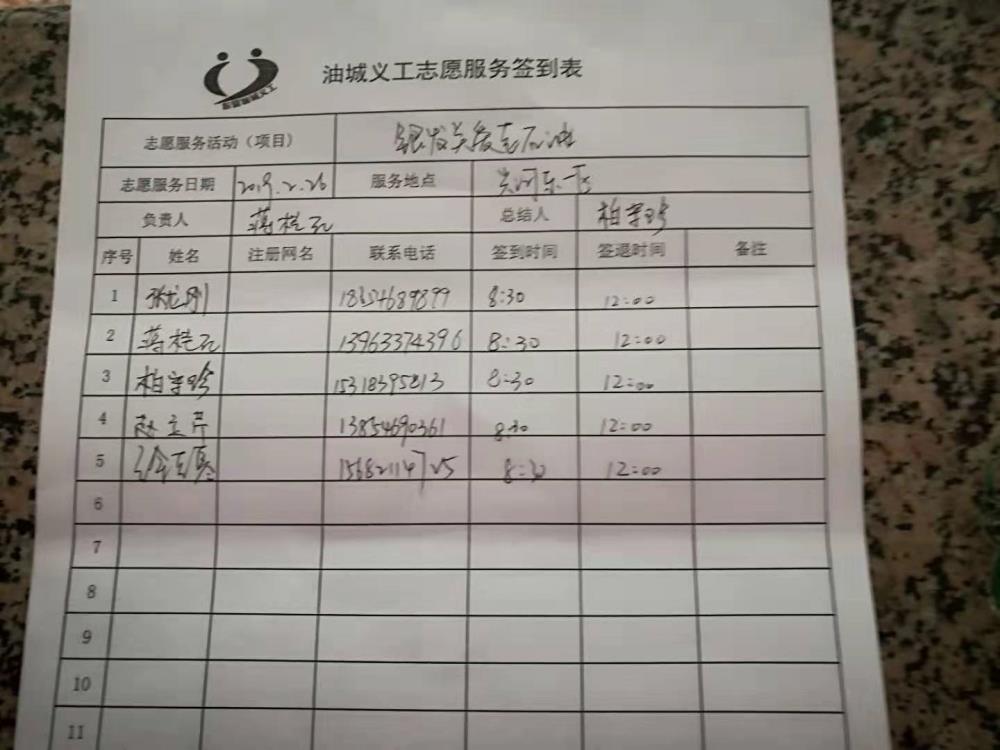 东营油城义工
油城义工志愿服务签到表
志愿服务活动（项目） 银发关爱
志愿服务日期 2019.2.26 服务地点
负责人 蒋桂 总结人 柏学珍
序号 姓名 注册网名 联系电话 签到时间 签退时间 备注
1 张龙刚 8:30 12:00
2 蒋桂 13963374396 8:30 12:00
3 柏学珍 15318395813 8:30 12:00
4 赵立芹 13854690361 8:30 12:00
5 15682114725 8:30 12:00
6
7
8
9
10
11